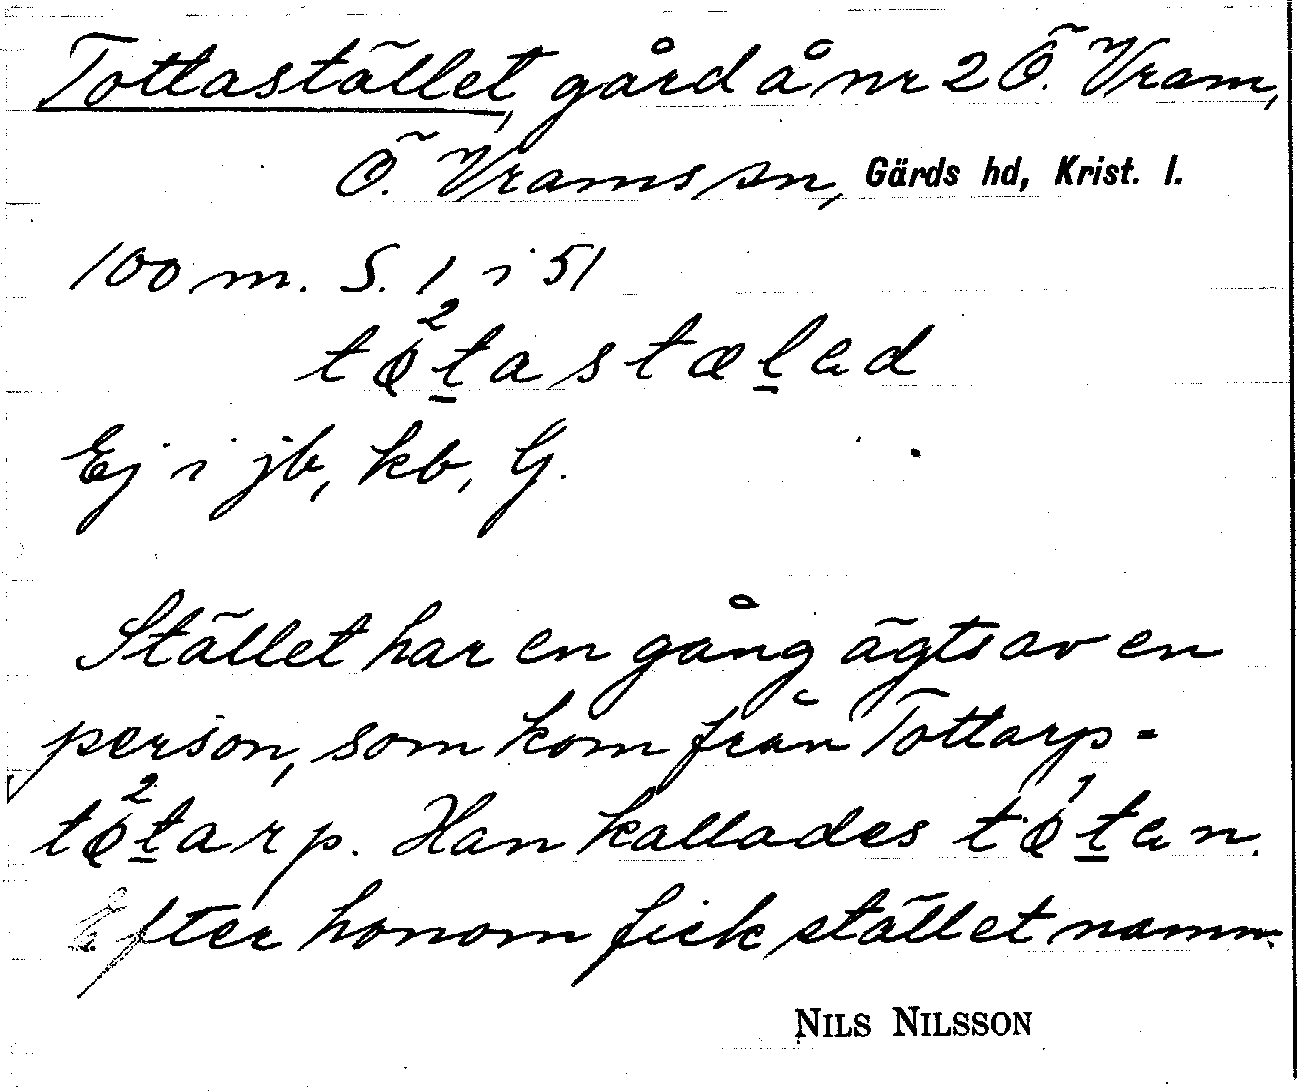 Tottastället, gård å nr 2 Ö. Vram,
Ö. Vrams sn, Gärds hd, Krist. l.
100 m. S. 1 i 51
tǫ²t̲astæl̲ad
Ej i jb, kb, G.
Stället har en gång ägts av en
person, som kom från Tottarp -
tǫ²t̲arp. Han kallades tǫ¹t̲an.
Efter honom fick stället namn.
NILS NILSSON